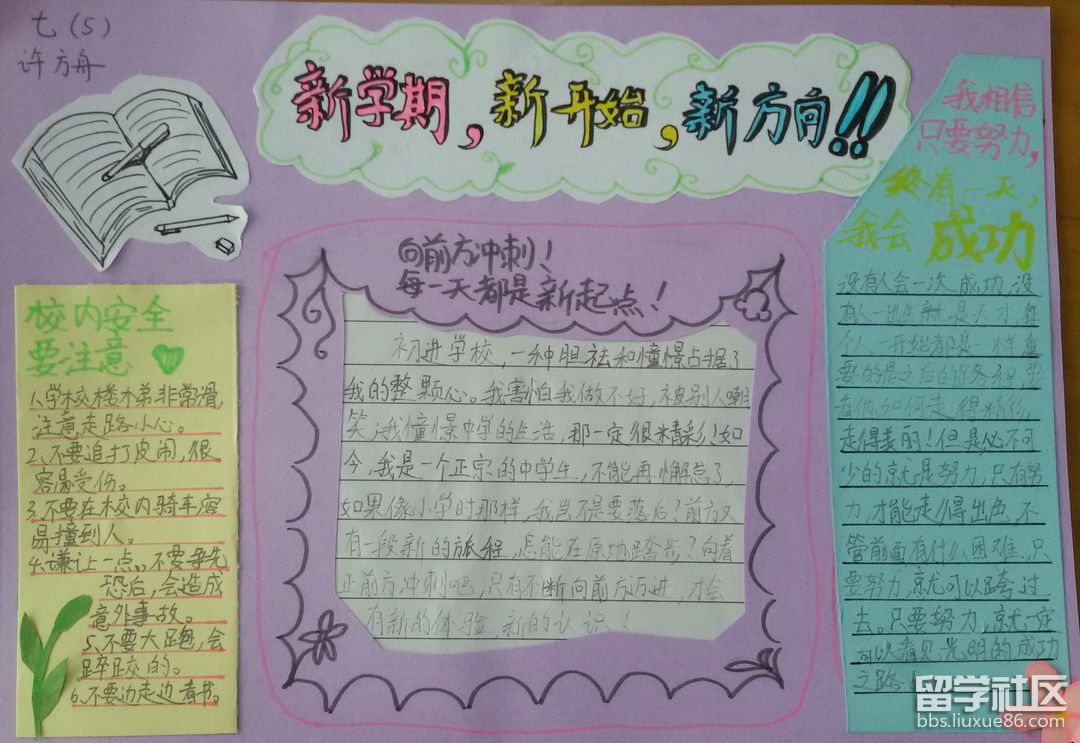 七(5)
许方舟
新学期,新开始,新方向!!
校内安全
要注意
1、学校楼梯非常滑,
注意走路小心。
2、不要追打皮闹,很
容易受伤。
3、不要在校内骑车容
易撞到人。
4、谦让一点,不要争先
恐后,会造成
意外事故。
5、不要大跑,会
跌跤的。
6、不要边走边看书。
向前方冲刺!
每一天都是新起点!
初进学校,一种胆祛和憧憬占据了
我的整颗心。我害怕我做不好,被别人嘲
笑;我憧憬中学的生活,那一定很精彩!如
今,我是一个正宗的中学生,不能再懈怠了,
如果像小学时那样,我岂不是要落后?前方又
有一段新的旅程,怎能在原地踏步?向着
前方冲刺吧,只有不断向前方迈进,才会
有新的体验,新的认识!
我相信
只要努力,
终有一天,
我会 成功
没有人会一次成功,没
有人一出生就是天才,每
个人一开始都是一样,重
要的是之后的路程,
看你如何走,得精彩,
走得美丽!但是必不可
少的就是努力,只有努
力,才能走得出色,不
管前面有什么困难,只
要努力,就可以跨过
去。只要努力,就一定
可以看见光明的成功
之路
留学社区
bbs.liuxue86.com